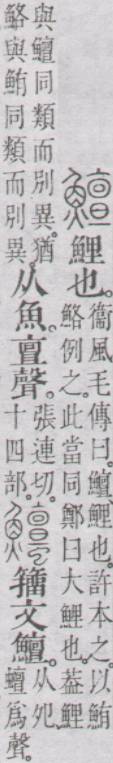 鱣鯉也。衞風毛傳曰。鱣、鯉也。許本之。以鮪
鮥例之。此當同鄭曰大鯉也。葢鯉
與鱣同類而別異。猶
鮥與鮪同類而別異。
从魚。亶聲。張連切。
十四部。
籒文鱣。从夗
蟺爲聲。